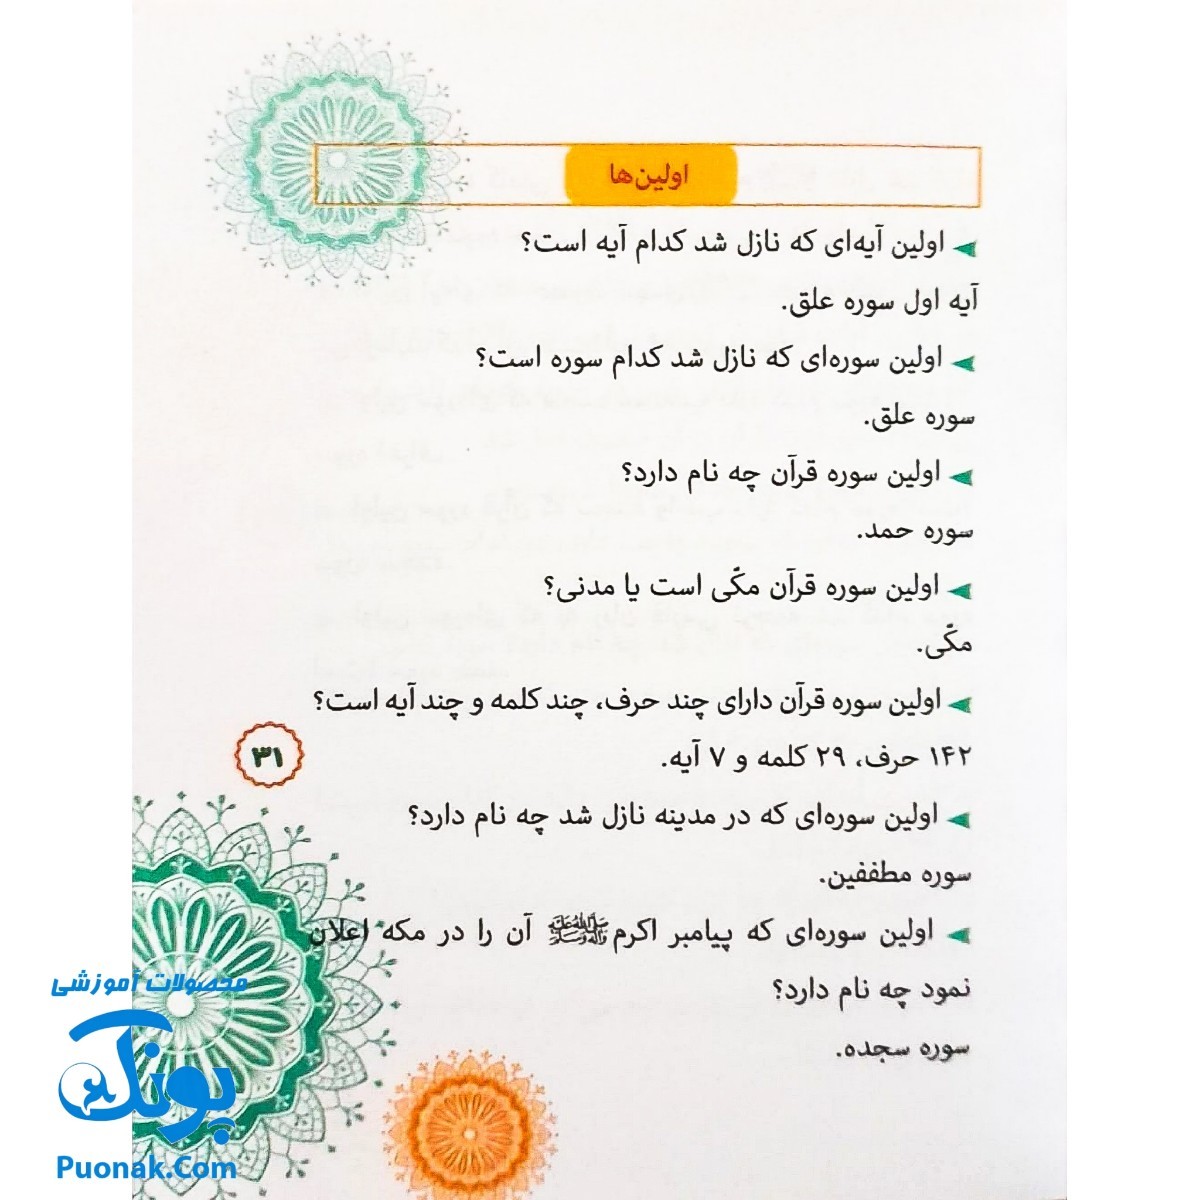 اولین‌ها
اولین آیه‌ای که نازل شد کدام آیه است؟
آیه اول سوره علق.
اولین سوره‌ای که نازل شد کدام سوره است؟
سوره علق.
اولین سوره قرآن چه نام دارد؟
سوره حمد.
اولین سوره قرآن مکّی است یا مدنی؟
مکّی.
اولین سوره قرآن دارای چند حرف، چند کلمه و چند آیه است؟
۱۴۲ حرف، ۲۹ کلمه و ۷ آیه.
۳۱
اولین سوره‌ای که در مدینه نازل شد چه نام دارد؟
سوره مطففین.
اولین سوره‌ای که پیامبر اکرم صلی الله علیه وآله وسلم آن را در مکه اعلان
نمود چه نام دارد؟
سوره سجده.
محصولات آموزشی
پونک
Puonak.Com